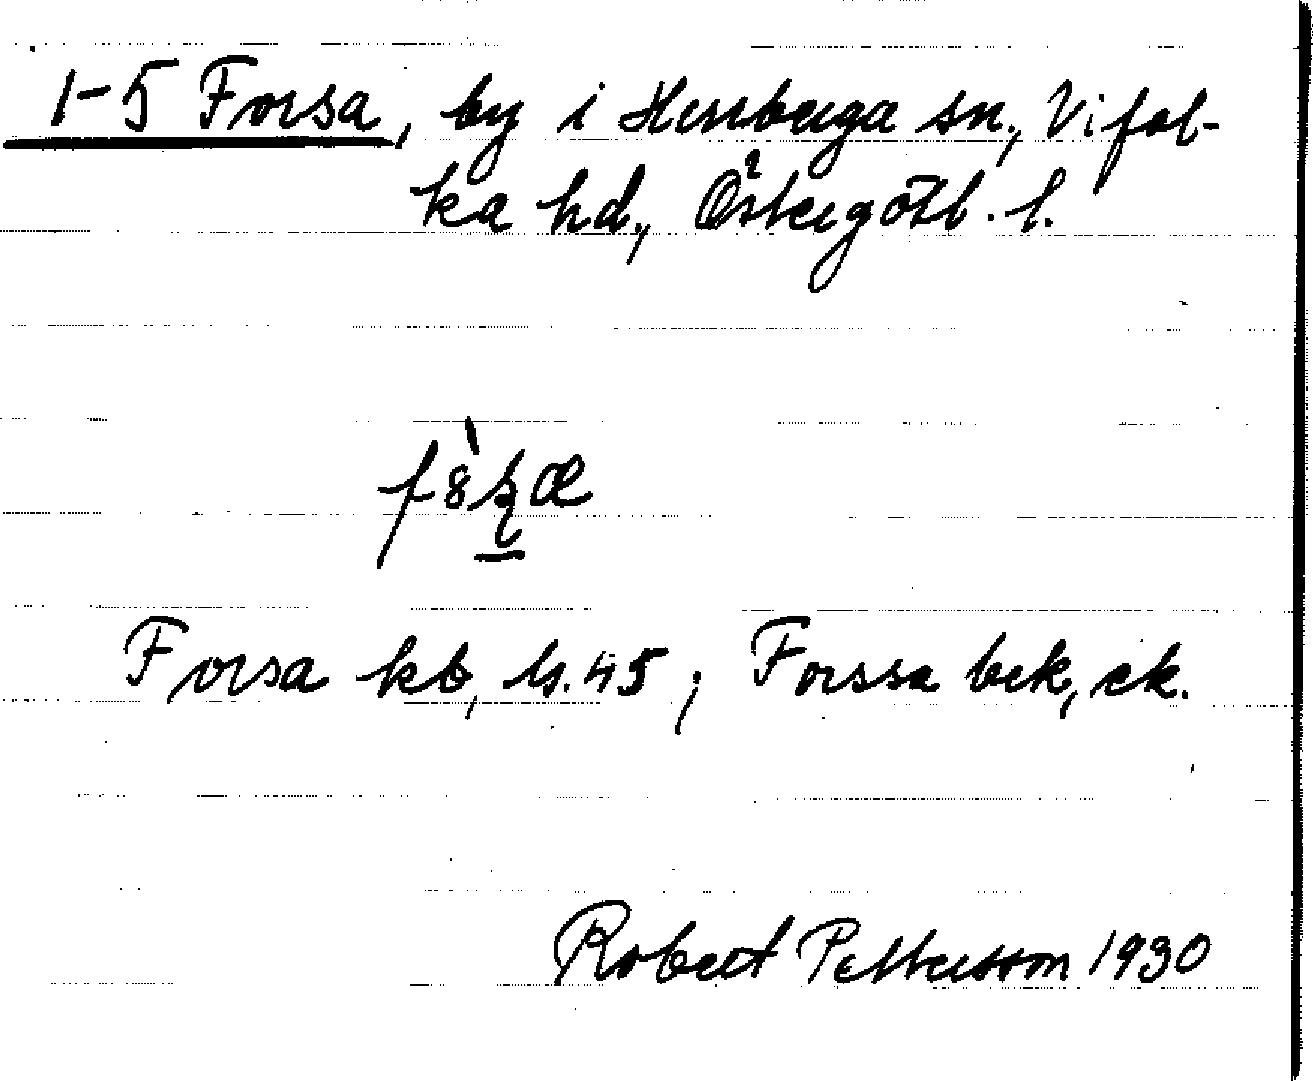 1-5 Forsa, by i Herrberga sn., Vifol-
ka hd., Östergötl. l.
Forsa kb, ls. 45; Forssa bek, ek.
Robert Pettersson 1930